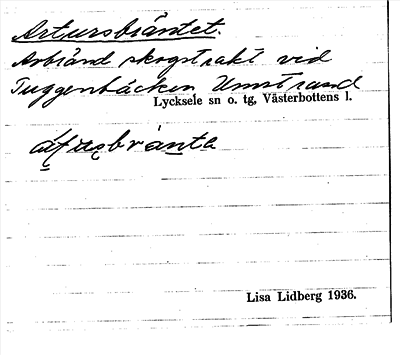 Artursbräntet.
Avbränd skogstrakt vid
Tuggenbäcken Umstrand
Lycksele sn o. tg, Västerbottens l.
Lisa Lidberg 1936.